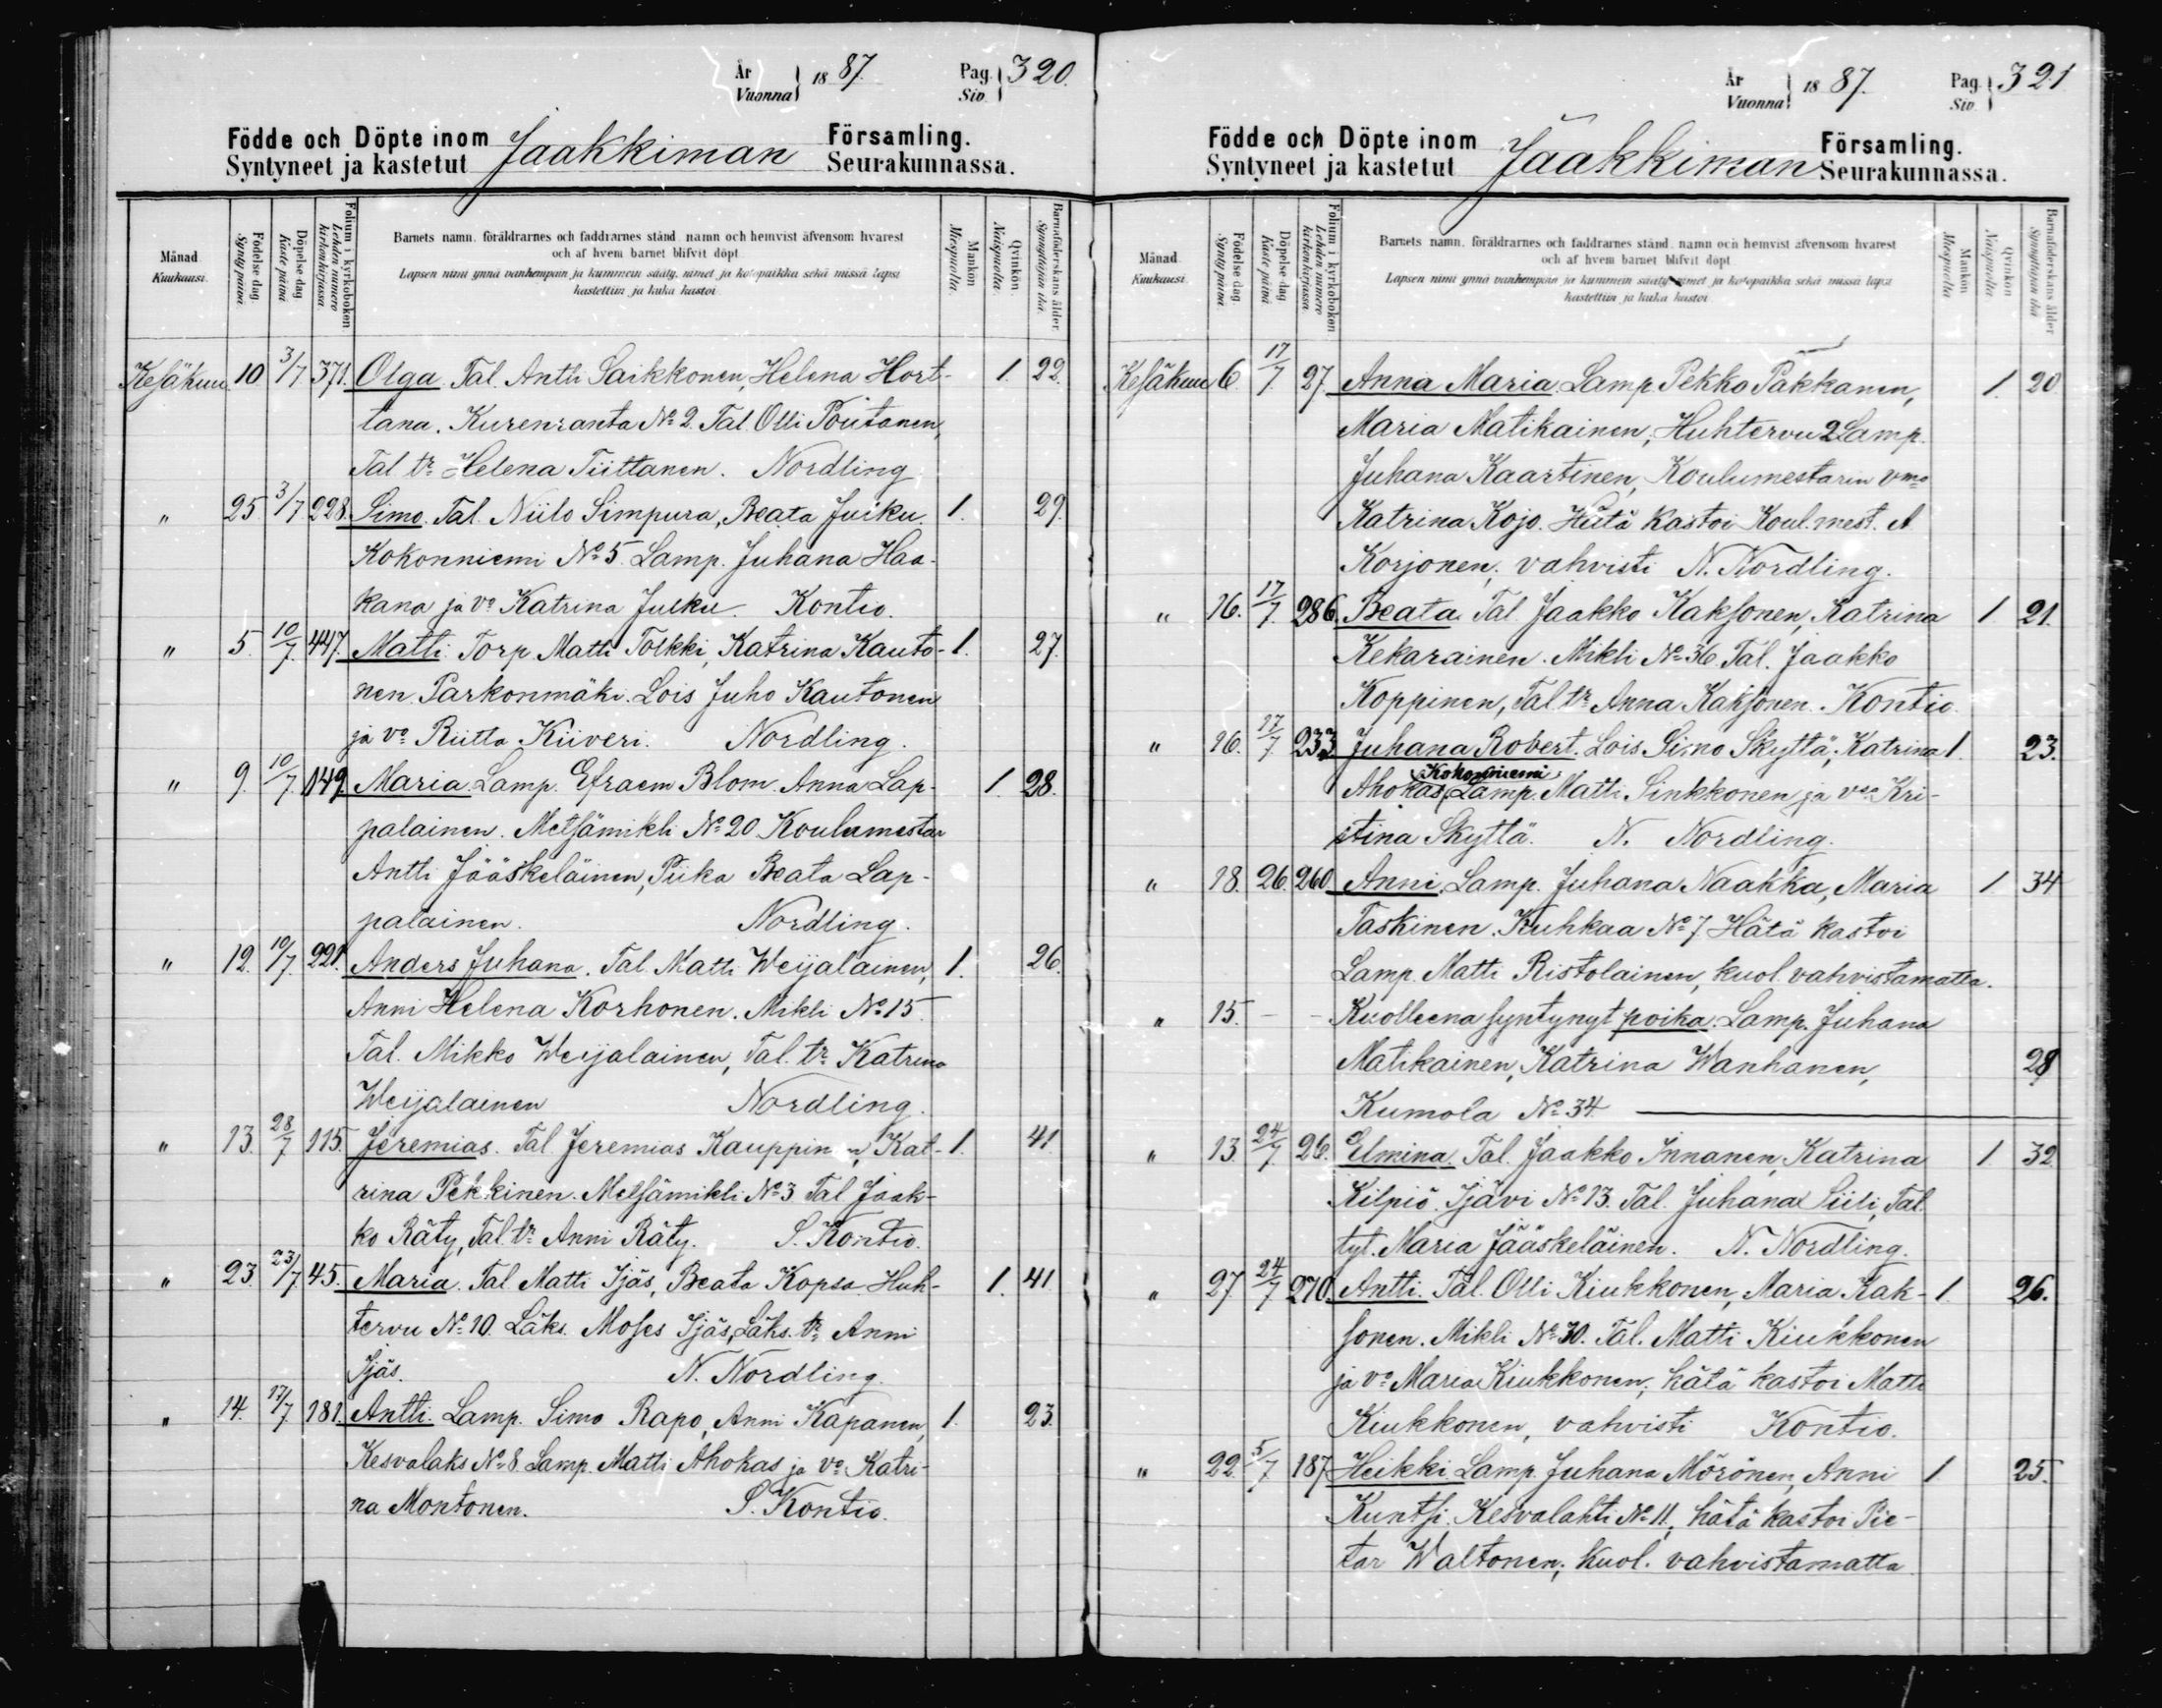 År Vuonna 18 87. Pag. Siv. 320.
Födde och Döpte inom Församling.
Syntyneet ja kastetut Jaakkiman Seurakunnassa.
Månad Kuukausi.
Födelse dag Synty päivä.
Döpelse dag Kaste päivä
Folium i kyrkoboken Lehden numero kirkonkirjassa.
Barnets namn, föräldrarnes och faddrarnes stånd, namn och hemvist äfvensom hvarest
och af hvem barnet blifvit döpt.
Lapsen nimi ynnä vanhempain ja kummein sääty, nimet ja kotopaikka sekä missä lapsi
kastettiin ja kuka kastoi.
Mankön Miespuolta.
Qvinkön. Naispuolta.
Barnaföderskans ålder. Synnyttäjän ikä.
Kesäkuu 10 3/7 371. Olga. Tal. Antti Saikkonen, Helena Hort- 1. 22.
tana. Kurenranta No 2. Tal. Olli Poutanen,
Tal tr Helena Tiittanen. Nordling
" 25 3/7 228. Simo. Tal. Niilo Simpura, Beata Juiku. 1. 29.
Kokonniemi No 5. Lamp. Juhana Haa-
kana ja vo Katrina Juiku. Kontio.
" 5. 10/7. 447. Matti. Torp. Matti Tolkki, Katrina Kauto- 1. 27.
nen. Parkonmäki. Lois Juho Kautonen
ja vo Riitta Kiiveri. Nordling.
" 9. 10/7. 149. Maria Lamp. Efraem Blom. Anna Lap- 1. 28.
palainen. Metsämikli No 20. Koulumestar
Antti Jääskeläinen, Piika Beata Lap-
palainen. Nordling.
" 12. 10/7. 221. Anders Juhana. Tal. Matti Weijalainen, 1. 26.
Anni Helena Korhonen. Mikli No 15.
Tal. Mikko Weijalainen, Tal. tr Katrina
Weijalainen Nordling.
" 13. 28/7 115. Jeremias. Tal. Jeremias Kauppinen, Kat- 1. 41.
rina Pekkinen. Metsämikli No 3 Tal Jaak-
ko Räty, Tal tr Anni Räty. S. Kontio.
" 23. 23/7. 45. Maria. Tal. Matti Ijäs, Beata Kopsa. Huh- 1. 41
tervu No 10. Läks. Moses Ijäs, Läks. tr Anni
Ijäs. N. Nordling.
" 14. 17/7 181. Antti. Lamp. Simo Rapo, Anni Kapanen, 1. 23.
Kesvalaks No 8. Lamp. Matti Ahokas ja vo Katri-
na Montonen. S. Kontio.
År Vuonna 18 87. Pag. Siv. 321
Födde och Döpte inom Församling.
Syntyneet ja kastetut Jaakkiman Seurakunnassa.
Månad Kuukausi.
Födelse dag Synty päivä.
Döpelse dag Kaste päivä
Folium i kyrkoboken Lehden numero kirkonkirjassa.
Barnets namn, föräldrarnes och faddrarnes stånd, namn och hemvist äfvensom hvarest
och af hvem barnet blifvit döpt
Lapsen nimi ynnä vanhempain ja kummein sääty, nimet ja kotopaikka sekä missä lapsi
kastettiin ja kuka kastoi.
Mankön Miespuolta
Qvinkön Naispuolta
Barnaföderskans ålder Synnyttäjän ikä
Kesäkuu 6. 17/7 27. Anna Maria. Lamp. Pekko Pakkanen, 1. 20
Maria Matikainen, Huhtervu 2 Lamp.
Juhana Kaartinen, Koulumestarin vmo
Katrina Kojo. Hätä kastoi Koul. mest. A
Korjonen, vahvisti N. Nordling.
" 16. 17/7. 286. Beata. Tal. Jaakko Kaksonen, Katrina 1. 21.
Kekarainen. Mikli No 36. Tal. Jaakko
Koppinen, Tal. tr Anna Kaksonen. Kontio.
" 16. 17/7 233. Juhana Robert. Lois Simo Skyttä, Katrina 1. 23.
Kokonniemi
Ahokas, Lamp. Matti Sinkkonen ja vo Kri-
stina Skyttä. N. Nordling.
" 18. 26. 260. Anni. Lamp. Juhana Naakka, Maria 1 34
Taskinen. Kuhkaa No 7. Hätä kastoi
Lamp. Matti Ristolainen, kuol. vahvistamatta.
" 15. - - Kuolleena syntynyt poika. Lamp. Juhana
Matikainen, Katrina Wanhanen, 28
Kumola No 34
" 13. 24/7. 26. Elmina. Tal. Jaakko Innanen, Katrina 1. 32
Kilpiö. Ijävi No 13. Tal. Juhana Siili, Tal.
tyt. Maria Jääskeläinen. N. Nordling.
" 27 24/7 270. Antti. Tal. Olli Kiukkonen, Maria Kak- 1. 26.
sonen. Mikli No 30. Tal. Matti Kiukkonen
ja vo Maria Kiukkonen, hätä kastoi Matti
Kiukkonen, vahvisti Kontio.
" 22. 5/7 187. Heikki. Lamp. Juhana Mörönen, Anni 1 25.
Kuntsi. Kesvalahti No 11, hätä kastoi Pie-
tar Waltonen, kuol. vahvistamatta.